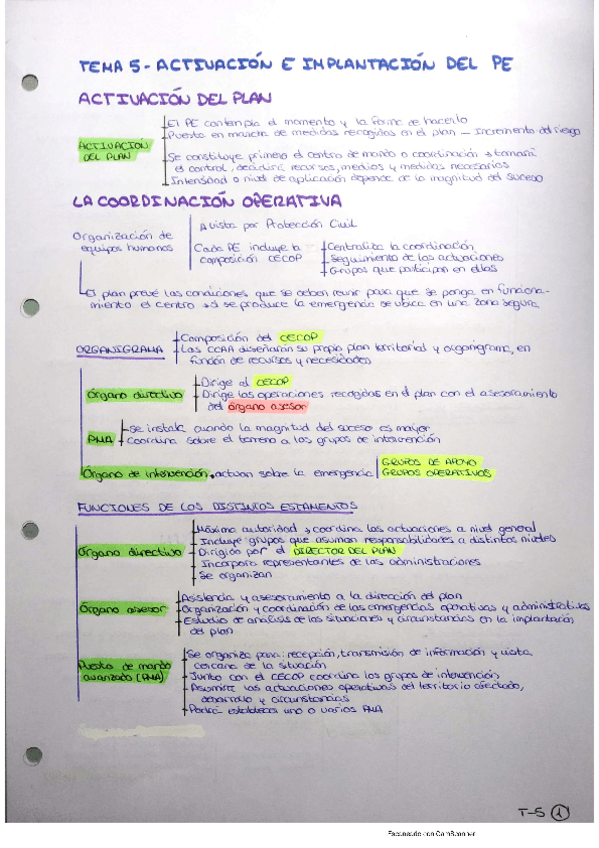 TEMA 5 - ACTIVACIÓN E IMPLANTACIÓN DEL PE
ACTIVACIÓN DEL PLAN
ACTIVACIÓN DEL PLAN
El PE contempla el momento y la forma de hacerlo
Puesta en marcha de medidas recogidas en el plan — Incremento del riesgo
Se constituye primero el centro de mando o coordinación → tomará
el control, decidirá recursos, medios y medidas necesarios
Intensidad o nivel de aplicación depende de la magnitud del suceso
LA COORDINACIÓN OPERATIVA
Organización de
equipos humanos
Avista por Protección Civil
Cada PE incluye la
composición CECOP
Centraliza la coordinación
Seguimiento de las actuaciones
Grupos que participan en ellas
El plan prevé las condiciones que se deben reunir para que se ponga en funciona-
miento el centro → si se produce la emergencia se ubica en una zona segura
ORGANIGRAMA
Composición del CECOP
Las CCAA diseñarán su propio plan territorial y organigrama, en
función de recursos y necesidades
Órgano directivo
Dirige al CECOP
Dirige las operaciones recogidas en el plan con el asesoramiento
del órgano asesor
PMA
Se instala cuando la magnitud del suceso es mayor
Coordina sobre el terreno a los grupos de intervención
Órgano de intervención • actuan sobre la emergencia
GRUPOS DE APOYO
GRUPOS OPERATIVOS
FUNCIONES DE LOS DISTINTOS ESTAMENTOS
Órgano directivo
Máxima autoridad → coordina las actuaciones a nivel general
Incluye grupos que asuman responsabilidades a distintos niveles
Dirigido por el DIRECTOR DEL PLAN
Incorpora representantes de las administraciones
Se organizan
Órgano asesor
Asistencia y asesoramiento a la dirección del plan
Organización y coordinación de las emergencias operativas y administrativas
Estudio de análisis de las situaciones y circunstancias en la implantación
del plan
Puesto de mando
avanzado (PMA)
Se organiza para: recepción, transmisión de información y visita
cercana de la situación
Junto con el CECOP coordina los grupos de intervención
Asumirá las actuaciones operativas del territorio afectado,
desarrollo y circunstancias
Podrá establecer uno o varios PMA
T-5 1
Escaneado con CamScanner